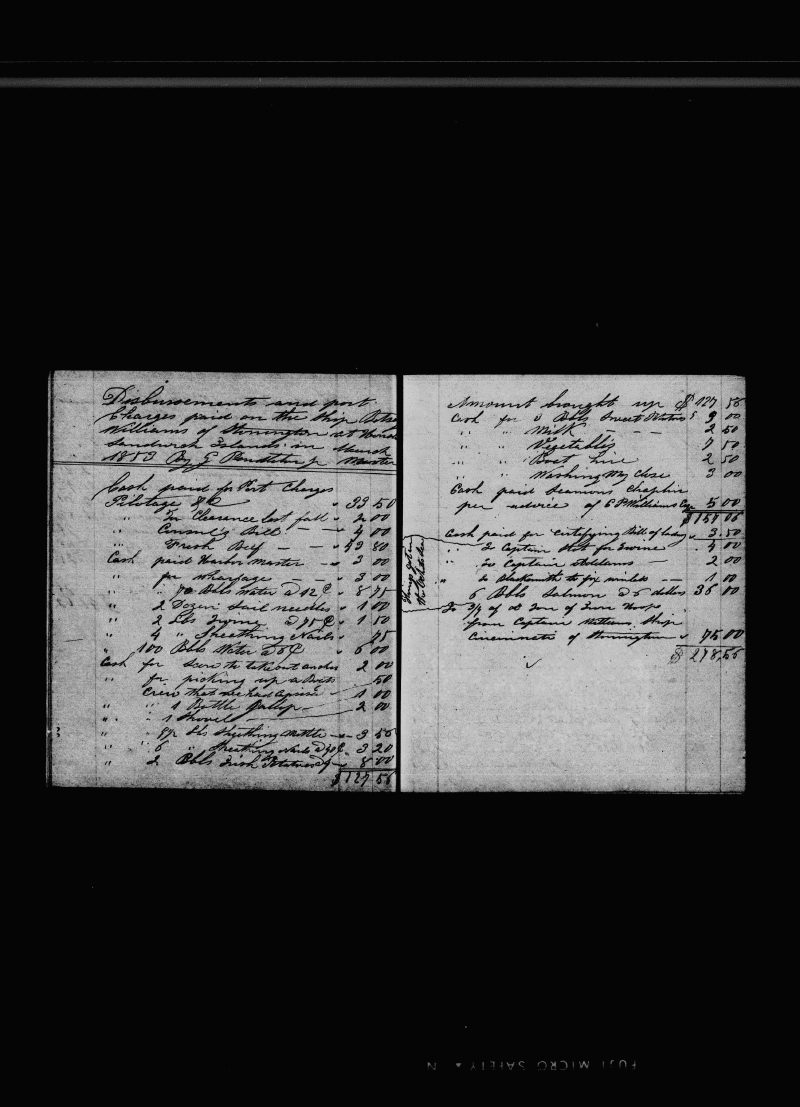 Disbursements and port
Charges paid on the Ship Betsey
Williams of Stonington at
Sandwich Islands in March
1853 By G Pendleton Jr Master
Cash paid for Port Charges
Pilotage &c " 33 50
" In Clearence last fall " 2 00
" Consul's Bill " 4 00
" Fresh Beef - - " 49 80
Cash paid Harbor master - " 3 00
" for wharfage - - " 3 00
" " 70 Bbls Water a 12 ¢ " 8 75
" 2 Dozen Sail needles " 1 00
" 2 Lbs a 75 ¢ " 1 50
" 4 " Sheething Nails " 75
" 100 Bbls Water a 6 ¢ " 6 00
Cash for to take out anchor 2 00
" for picking up a Boat 50
Crew that we had 1 00
" " 1 Bottle - 2 00
" " 1 Shovel
" " Lbs Sheething Mettle 3 56
" 6 " Sheething Nails 3 20
" 2 Bbls Irish Potatoes " 8 00
$ 127 56
Amount brought up $ 127 56
Cash for 3 Bbls Sweet Potatoes " 9 00
" " Milk - - - 2 50
" " Vegetables 7 50
" " Boat Line 2 50
" " Washing My Close 3 00
Cash paid Seamons Chaplin
per advice of C P Williams 5 00
$ 157 06
Cash paid for Certifying Bill of Lading " 3.50
" to Captain that for " 4 00
" to Captain - 2 00
" to Blacksmith to fix - - 1 00
6 Bbls Salmon a 6 dollars 36 00
To of Ton of Iron Hoops
from Captain Williams Ship
Cincinnati of Stonington " 75.00
$ 278.56